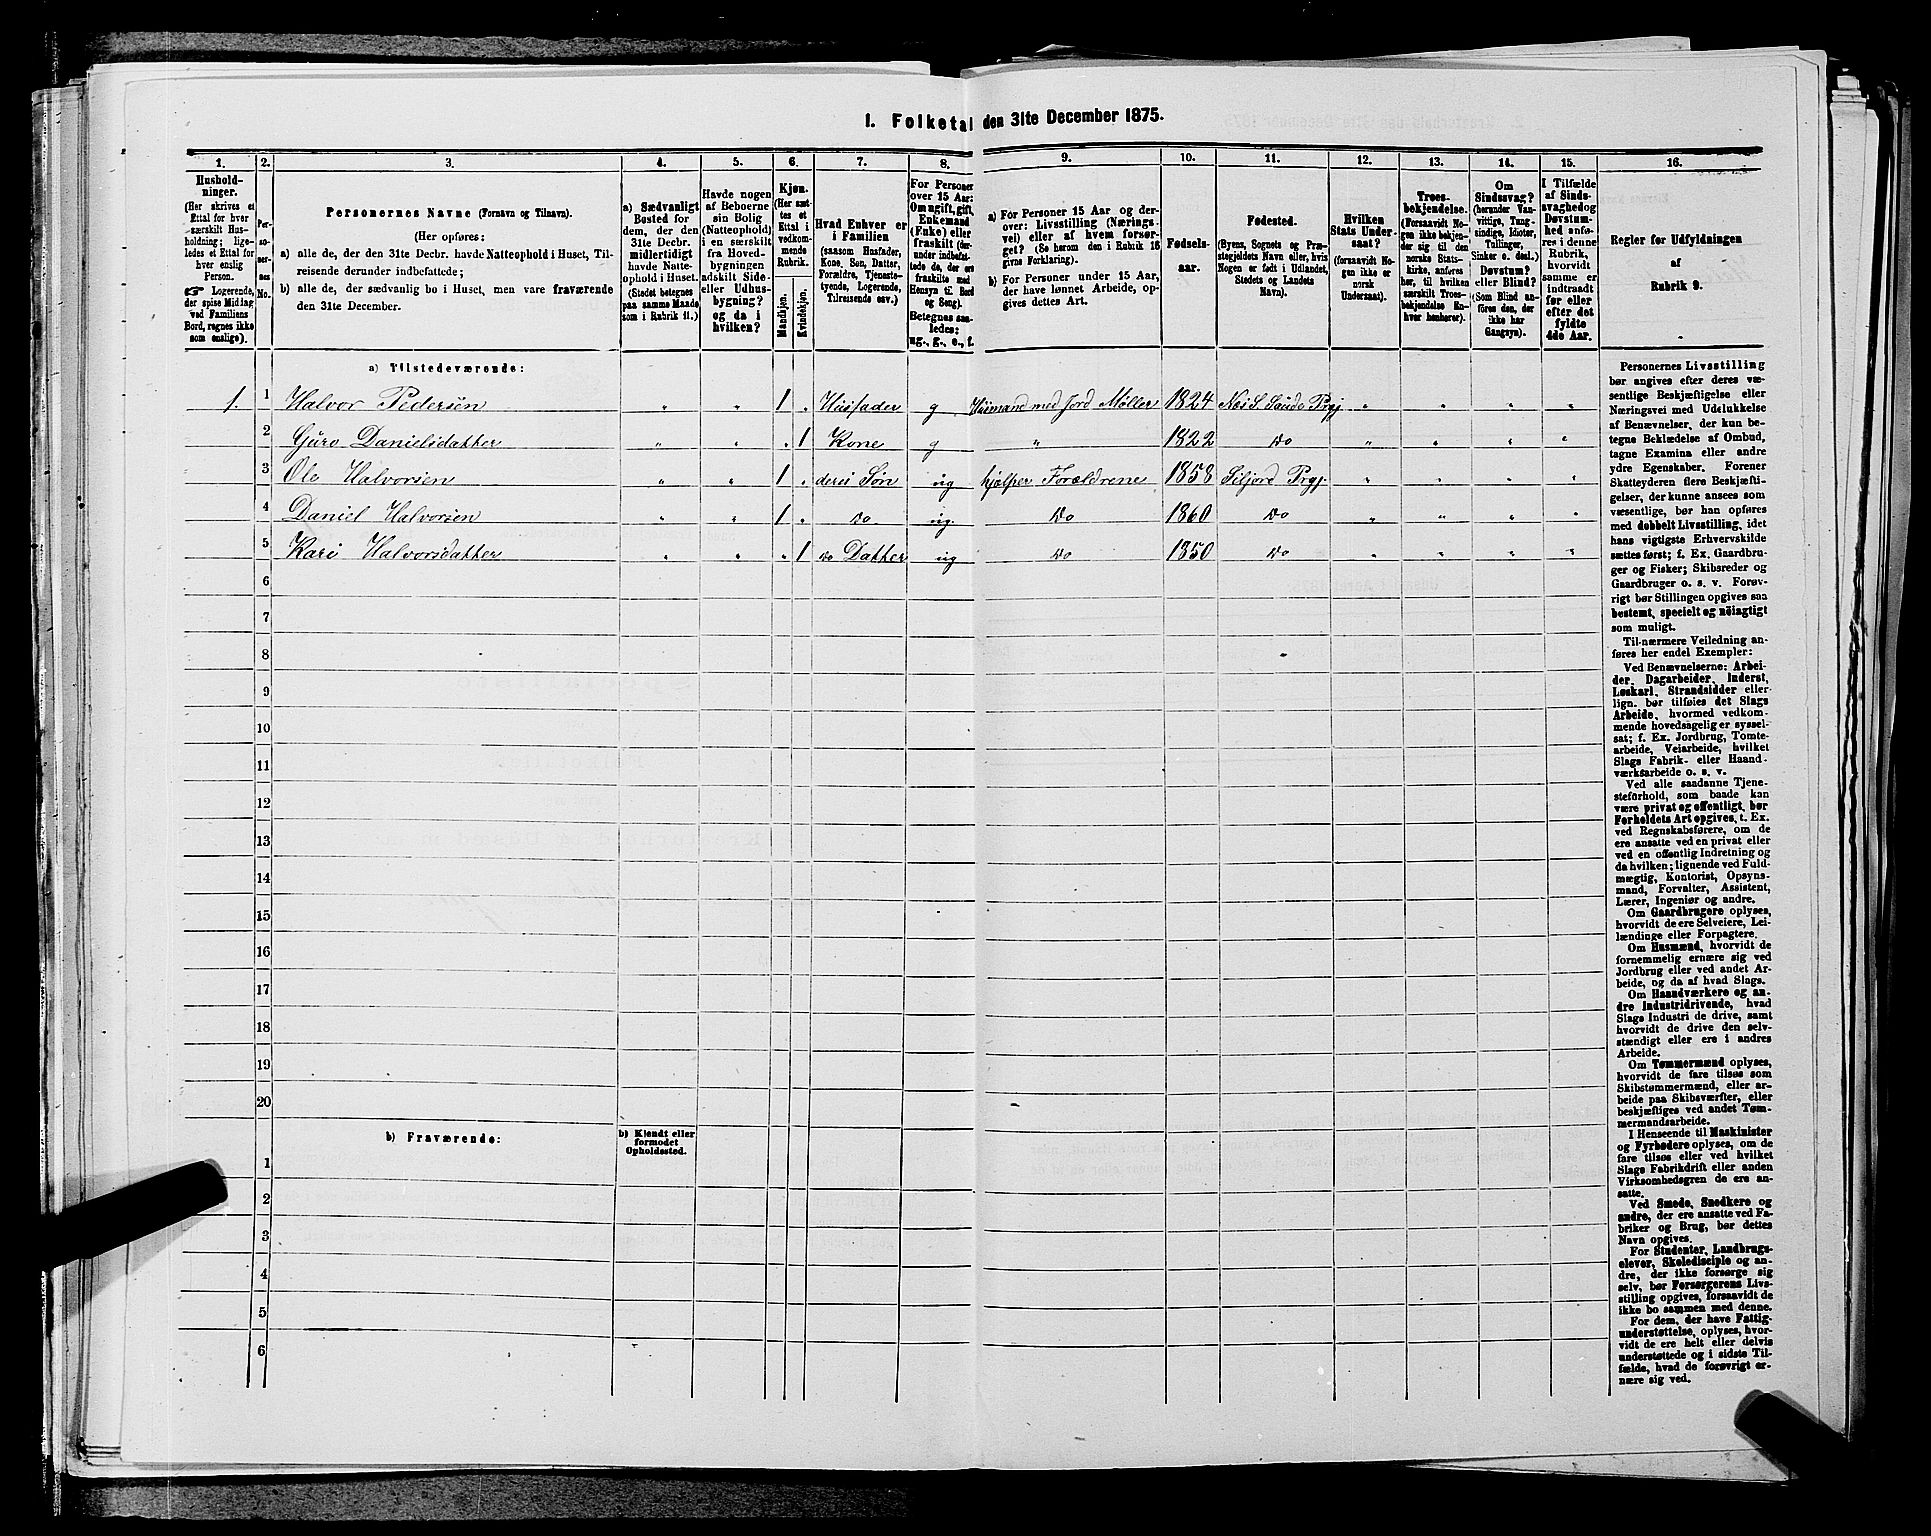 I. Folketal den 31te December 1875.
1.
2.
3.
4.
5.
6.
7.
8.
9.
10.
11.
12.
13.
14.
15.
16.
Hushold-
ninger.
(Her skrives et
Ettal for hver
særskilt Hus-
holdning; lige-
ledes et Ettal for
hver enslig
Person.
☞ Logerende,
der spise Middag
ved Familiens
Bord, regnes ikke
som enslige).
Per-
so-
ner-
nes
No.
Personernes Navne (Fornavn og Tilnavn).
(Her opføres:
a) alle de, der den 31te Decbr. havde Natteophold i Huset, Til-
reisende derunder indbefattede;
b) alle de, der sædvanlig bo i Huset, men vare fraværende
den 31te December.
a) Sædvanligt
Bosted for
dem, der den
31te Decbr.
midlertidigt
havde Natte-
ophold i Huset.
(Stedet betegnes
paa samme Maade
som i Rubrik 11.)
Havde nogen
af Beboerne
sin Bolig
(Natteophold)
i en særskilt
fra Hoved-
bygningen
adskilt Side-
eller Udhus-
bygning?
og da i
hvilken?
Kjøn.
(Her sæt-
tes et
Ettal i
vedkom-
mende
Rubrik.
Mandkjøn.
Kvindekjøn.
Hvad Enhver er
i Familien
(saasom Husfader,
Kone, Søn, Datter,
Forældre, Tjeneste-
tyende, Logerende,
Tilreisende osv.)
For Personer
over 15 Aar:
Om ugift, gift,
Enkemand
(Enke) eller
fraskilt (der-
under indbefat-
tede de, der ere
fraskilte med
Hensyn til Bord
og Seng).
Betegnes saa-
ledes:
ug., g., e., f.
a) For Personer 15 Aar og der-
over: Livsstilling (Nærings-
vei) eller af hvem forsør-
get? (Se herom den i Rubrik 16
givne Forklaring).
b) For Personer under 15 Aar,
der have lønnet Arbeide, op-
gives dettes Art.
Fødsels-
aar.
Fødested.
(Byens, Sognets og Præ-
stegjeldets Navn eller, hvis
Nogen er født i Udlandet,
Stedets og Landets
Navn).
Hvilken
Stats Under-
saat?
(forsaavidt No-
gen ikke er
norsk
Undersaat).
Troes-
bekjendelse.
(Forsaavidt No-
gen ikke bekjen-
der sig til den
norske Stats-
kirke, anføres
her, til hvilken
særskilt Troes-
bekjendelse En-
hver henhører).
Om
Sindssvag?
(herunder Van-
vittige, Tung-
sindige, Idioter,
Tullinger,
Sinker o. desl.)
Døvstum?
eller Blind?
(Som Blind an-
føres den, der
ikke har
Gangsyn).
I Tilfælde
af Sinds-
svaghed og
Døvstum-
hed anfø-
res i denne
Rubrik,
hvorvidt
samme er
indtraadt
før eller
efter det
fyldte
4de Aar.
Regler for Udfyldningen
af
Rubrik 9.
a) Tilstedeværende:
1. 1 Halvor Pedersen „ „ 1 „ Husfader g Husmand med Jord Møller 1824 Næs S. Saude Prgj. „ „ „ „
2 Guro Danielsdatter „ „ „ 1 Kone g „ 1822 Do „ „ „ „
3 Ole Halvorsen „ „ 1 „ deres Søn ug hjælper Forældrene 1858 Siljord Prgj. „ „ „ „
4 Daniel Halvorsen „ „ 1 „ Do. ug. Do 1860 Do „ „ „ „
5 Kari Halvorsdatter „ „ „ 1 Do Datter ug Do 1850 Do „ „ „ „
6
7
8
9
10
11
12
13
14
15
16
17
18
19
20
b) Fraværende:
b) Kjendt eller
formodet
Opholdssted.
1
2
3
4
5
6
Personernes Livsstilling
bør angives efter deres væ-
sentlige Beskjæftigelse eller
Næringsvei med Udelukkelse
af Benævnelser, der kun be-
tegne Beklædelse af Ombud,
tagne Examina eller andre
ydre Egenskaber. Forener
Skatteyderen flere Beskjæfti-
gelser, der kunne ansees som
væsentlige, bør han opføres
med dobbelt Livsstilling, idet
hans vigtigste Erhvervskilde
sættes først; f. Ex. Gaardbru-
ger og Fisker; Skibsreder og
Gaardbruger o. s. v. Forøv-
rigt bør Stillingen opgives saa
bestemt, specielt og nöiagtigt
som muligt.
Til nærmere Veiledning an-
føres her endel Exempler:
Ved Benævnelserne: Arbei-
der, Dagarbeider, Inderst,
Løskarl, Strandsidder eller
lign. bør tilføies det Slags
Arbeide, hvormed vedkom-
mende hovedsagelig er syssel-
sat; f. Ex. Jordbrug, Tomte-
arbeide, Veiarbeide, hvilket
Slags Fabrik- eller Haand-
værksarbeide o. s. v.
Ved alle saadanne Tjene-
steforhold, som baade kan
være privat og offentligt, bør
Forholdets Art opgives, t. Ex.
ved Regnskabsførere, om de
ere ansatte ved en privat eller
ved en offentlig Indretning og
da hvilken; lignende ved Fuld-
mægtig, Kontorist, Opsyns-
mand, Forvalter, Assistent,
Lærer, Ingeniør og andre.
Om Gaardbrugere oplyses,
hvorvidt de ere Selveiere, Lei-
lændinge eller Forpagtere.
Om Husmænd, hvorvidt de
fornemmelig ernære sig ved
Jordbrug eller ved andet Ar-
beide, og da af hvad Slags.
Om Haandværkere og an-
dre Industridrivende, hvad
Slags Industri de drive, samt
hvorvidt de drive den selv-
stændigt eller ere i andres
Arbeide.
Om Tømmermænd oplyses,
hvorvidt de fare tilsøs som
Skibstømmermænd, eller ar-
beide paa Skibsværfter, eller
beskjæftiges ved andet Tøm-
mermandsarbeide.
I Henseende til Maskinister
og Fyrbødere oplyses, om de
fare tilsøs eller ved hvilket
Slags Fabrikdrift eller anden
Virksomhedsgren de ere an-
satte.
Ved Smede, Snedkere og
andre, der ere ansatte ved Fa-
briker og Brug, bør dettes
Navn opgives.
For Studenter, Landbrugs-
elever, Skoledisciple og an-
dre, der ikke forsørge sig
selv, bør Forsørgerens Livs-
stilling opgives, forsaavidt de
ikke bo sammen med denne.
For dem, der have Fattig-
understøttelse, oplyses, hvor-
vidt de ere helt eller delvis
understøttede og i sidste Til-
fælde, hvad de forøvrigt er-
nære sig ved.